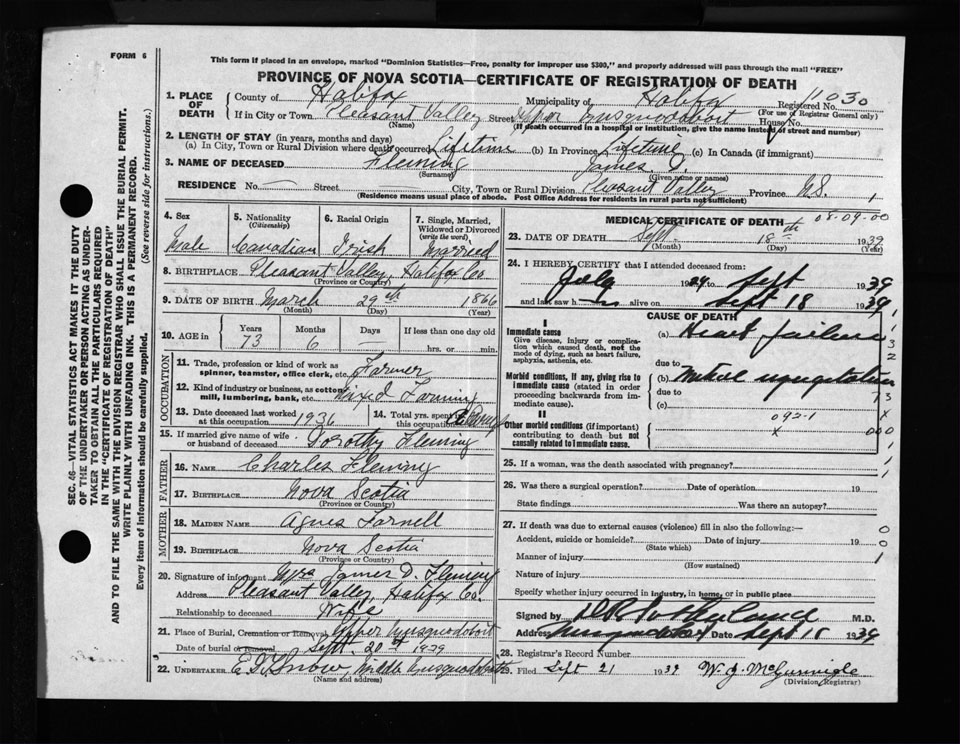 FORM 6
This form if placed in an envelope, marked "Dominion Statistics—Free, penalty for improper use $300," and properly addressed will pass through the mail "FREE"
PROVINCE OF NOVA SCOTIA—CERTIFICATE OF REGISTRATION OF DEATH
1. PLACE OF DEATH
County of Halifax Municipality of Halifax Registered No. 11030
(For use of Registrar General only)
If in City or Town Pleasant Valley Street Upper Musquodoboit House No.
(Name) (If death occurred in a hospital or institution, give the name instead of street and number)
2. LENGTH OF STAY (in years, months and days)
(a) In City, Town or Rural Division where death occurred Lifetime (b) In Province Lifetime (c) In Canada (if immigrant)
3. NAME OF DECEASED Fleming James D.
(Surname) (Given name or names)
RESIDENCE No. — Street — City, Town or Rural Division Pleasant Valley Province N.S.
(Residence means usual place of abode. Post Office Address for residents in rural parts not sufficient)
4. Sex Male
5. Nationality (Citizenship) Canadian
6. Racial Origin Irish
7. Single, Married, Widowed or Divorced (write the word) Married
8. BIRTHPLACE Pleasant Valley, Halifax Co
(Province or Country)
9. DATE OF BIRTH March 29th 1866
(Month) (Day) (Year)
10. AGE in Years 73 Months 6 Days — If less than one day hrs. or min.
OCCUPATION
11. Trade, profession or kind of work as spinner, teamster, office clerk, etc. Farmer
12. Kind of industry or business, as cotton mill, lumbering, bank, etc. Mixed Farming
13. Date deceased last worked at this occupation 1936
14. Total yrs. spent in this occupation always
15. If married give name of wife or husband of deceased Dorothy Fleming
FATHER
16. NAME Charles Fleming
17. BIRTHPLACE Nova Scotia
(Province or Country)
MOTHER
18. MAIDEN NAME Agnes Farnell
19. BIRTHPLACE Nova Scotia
(Province or Country)
20. Signature of informant Mrs James D. Fleming
Address Pleasant Valley, Halifax Co.
Relationship to deceased Wife
21. Place of Burial, Cremation or Removal Upper Musquodoboit
Date of burial or Removal Sept. 20th 1939
22. UNDERTAKER E. Snow, Middle Musquodoboit
(Name and address)
MEDICAL CERTIFICATE OF DEATH 08-09-00
23. DATE OF DEATH Sept. 18th 1939
(Month) (Day) (Year)
24. I HEREBY CERTIFY that I attended deceased from:
July to Sept 1939
and last saw h alive on Sept 18 1939
CAUSE OF DEATH
I
Immediate cause
Give disease, injury or complication which caused death, not the mode of dying, such as heart failure, asphyxia, asthenia, etc.
(a) Heart failure
due to
Morbid conditions, if any, giving rise to immediate cause (stated in order proceeding backwards from immediate cause).
(b) Mitral regurgitation
due to
(c)
II
Other morbid conditions (if important) contributing to death but not causally related to immediate cause.
092-1
25. If a woman, was the death associated with pregnancy?
26. Was there a surgical operation? Date of operation 19
State findings Was there an autopsy?
27. If death was due to external causes (violence) fill in also the following:—
Accident, suicide or homicide? Date of injury 19
(State which)
Manner of injury
(How sustained)
Nature of injury
Specify whether injury occurred in industry, in home, or in public place
Signed by M.D.
Address Musquodoboit Date Sept 18 1939
28. Registrar's Record Number
29. Filed Sept 21 1939 W. J. McGunnigle
(Division Registrar)
SEC. 46—VITAL STATISTICS ACT MAKES IT THE DUTY
OF THE UNDERTAKER OR PERSON ACTING AS UNDER-
TAKER TO OBTAIN ALL THE PARTICULARS REQUIRED
IN THE "CERTIFICATE OF REGISTRATION OF DEATH"
AND TO FILE THE SAME WITH THE DIVISION REGISTRAR WHO SHALL ISSUE THE BURIAL PERMIT.
WRITE PLAINLY WITH UNFADING INK. THIS IS A PERMANENT RECORD.
Every item of information should be carefully supplied. (See reverse side for instructions.)